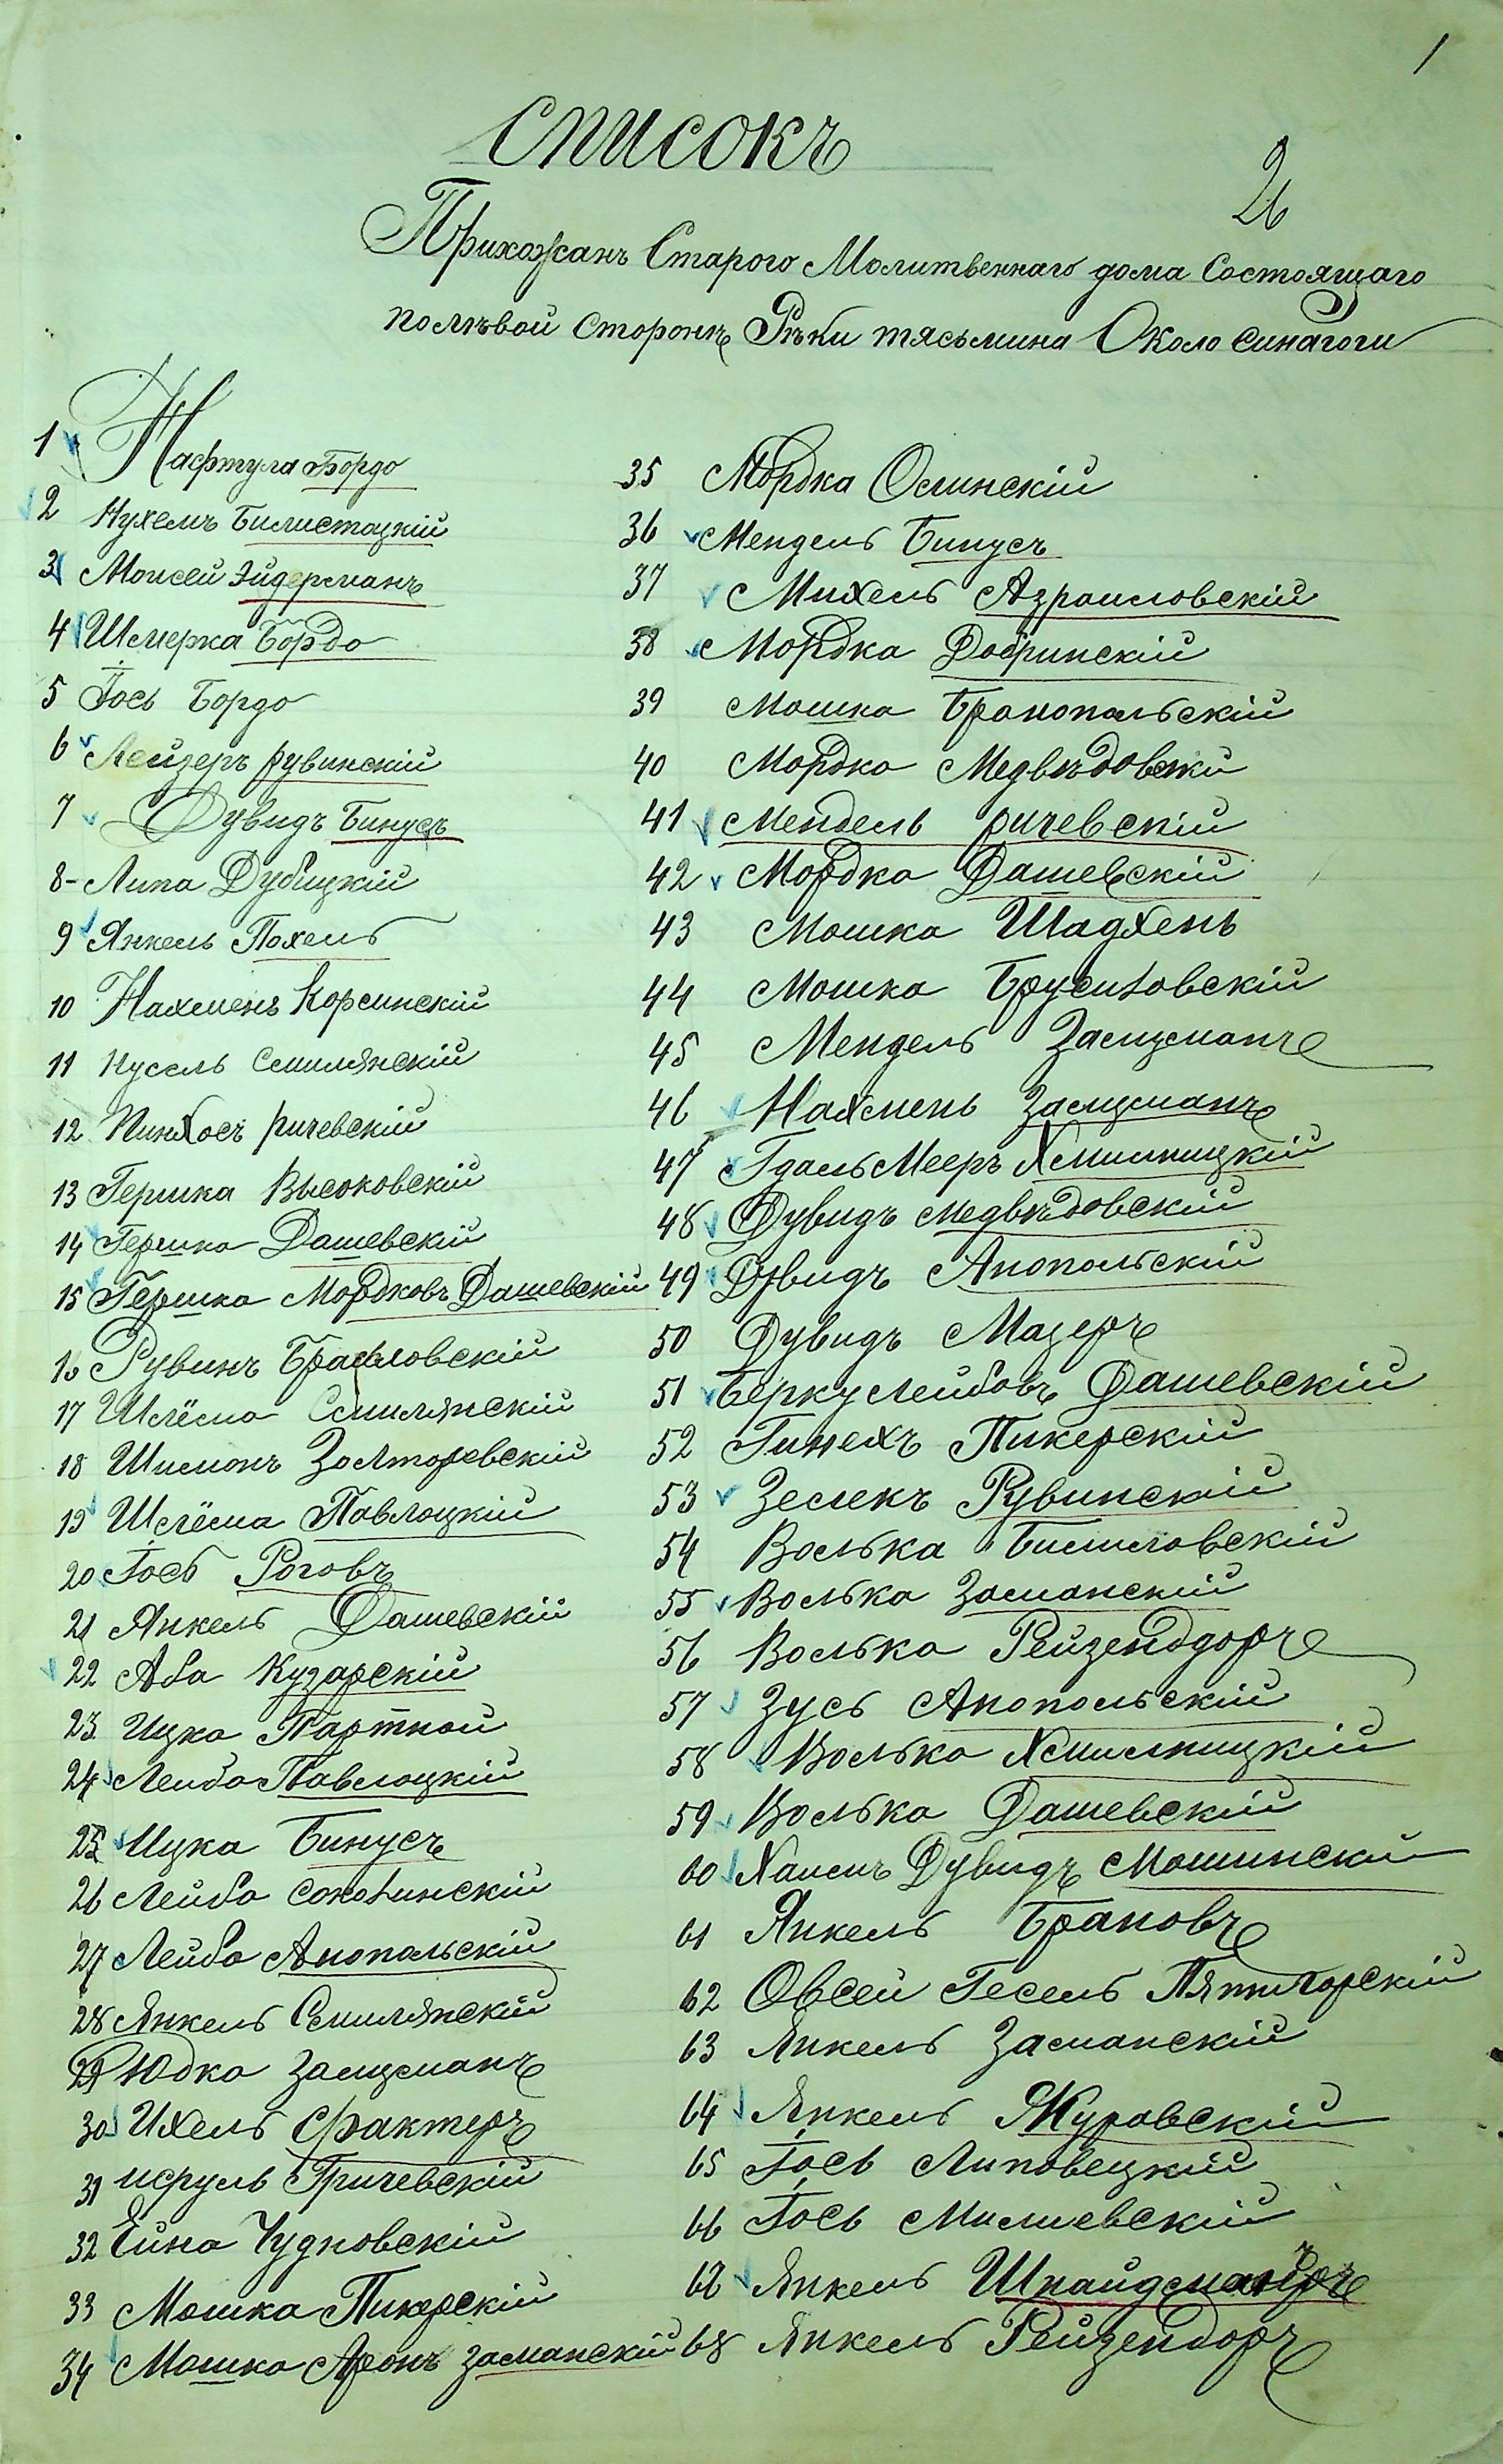 1
списокъ
2
Прихожанъ Старого Молитвеннаго дома Состоящаго
полѣвой Сторонѣ Рѣки тясьмина Около синагоги
1 Нафтула Бордо
2 Нухемъ Билистоцкій
3 Моисей Эйдерманъ
4 Шмерка Бордо
5 Іось Бордо
6 Лейзеръ рувинскій
7 Дувидъ Бинусъ
8 - Липа Дубицкій
9 Янкель Похель
10 Нахмень Корсинскій
11 Нусель Смилянскій
12 Пинхосъ ричевскій
13 Гершка Высоковскій
14 Гершко Дашевскій
15 Гершко Мордковъ Дашевскій
16 Рувинъ Брацловскій
17 Шлёма Смилянскій
18 Шимонъ Золторевскій
19 Шлёма Павлоцкій
20 Іось Роговъ
21 Янкель Дашевскій
22 Аба Кузарскій
23 Ицко Партной
24 Лейбо Павлоцкій
25 Ицка Бинусъ
26 Лейбо Соколинскій
27 Лейбо Анопольскій
28 Янкель Смилянскій
29 Юдко Замцманъ
30 Ихель Фактеръ
31 исруль Гричевскій
32 Ейна Чудновскій
33 Мошка Пикерскій
34 Мошко Аронъ Заманскій
35 Мордка Осинскій
36 Мендель Бинусъ
37 Михель Азраиловскій
38 Мордка Добринскій
39 Мошка Бранопальскій
40 Мордко Медвѣдовски
41 Мендель ричевскій
42 Мордко Дашевскій
43 Мошка Шадхень
44 Мошко Брусиловскій
45 Мендель Замцманъ
46 Нахмень Замцманъ
47 Гдаль Мееръ Хмилницкій
48 Дувидъ Медвѣдовскій
49 Дувидъ Анопольскій
50 Дувидъ Мазеръ
51 Берку лейбовъ Дашевскій
52 Гинехъ Пикерскій
53 Зелекъ Рувинскій
54 Волька Билиловскій
55 Волька Заманскій
56 Волько Рейзендоръ
57 Зусь Анопольскій
58 Волько Хмилницкій
59 Волько Дашевскій
60 Хаимъ Дувидъ Мошински
61 Янкель Брановъ
62 Овсей Гесель Пятигорскій
63 Янкель Заманскій
64 Янкель Журовскій
65 Іось Липовецкій
66 Іось Милиевскій
67 Янкель
68 Янкель Рейзендоръ